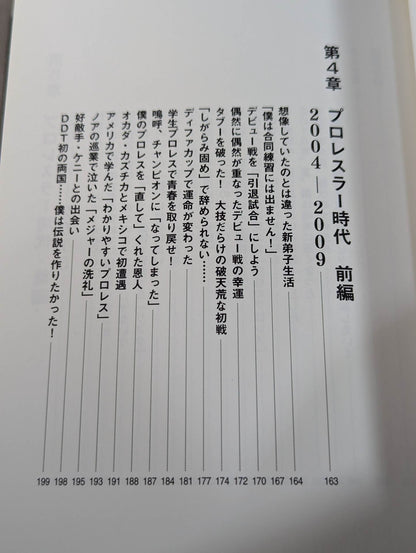 第4章 プロレスラー時代 前編
2004―2009 163
想像していたのとは違った新弟子生活 164
「僕は合同練習には出ません!」 167
デビュー戦を「引退試合」にしよう 170
偶然に偶然が重なったデビュー戦の幸運 172
タブーを破った! 大技だらけの破天荒な初戦 174
「しがらみ固め」で辞められない…… 177
ディファカップで運命が変わった 181
学生プロレスで青春を取り戻せ! 184
嗚呼、チャンピオンに「なってしまった」 186
僕のプロレスを「直して」くれた恩人 187
オカダ・カズチカとメキシコで初遭遇 188
アメリカで学んだ「わかりやすいプロレス」 191
ノアの巡業で泣いた「メジャーの洗礼」 193
好敵手・ケニーとの出会い 195
DDT初の両国……僕は伝説を作りたかった! 198
199